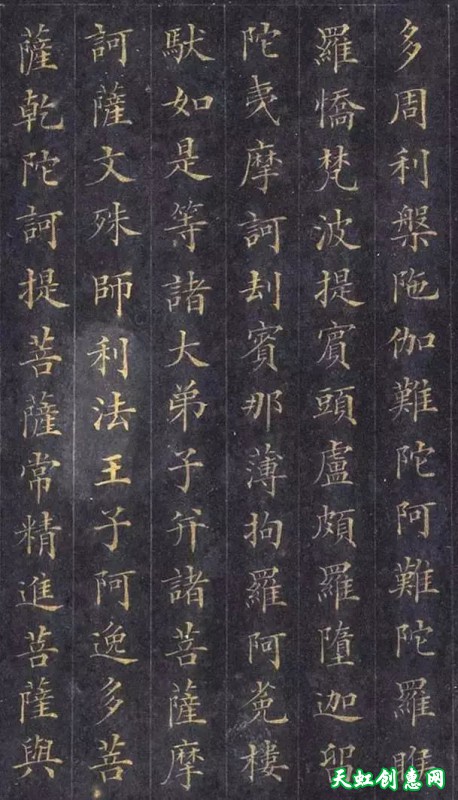 多周利槃陁伽難陀阿難陀羅睺
羅憍梵波提賓頭盧頗羅墮迦留
陀夷摩訶劫賓那薄拘羅阿㝹樓
馱如是等諸大弟子并諸菩薩摩
訶薩文殊師利法王子阿逸多菩
薩乾陀訶提菩薩常精進菩薩與
天虹创惠网